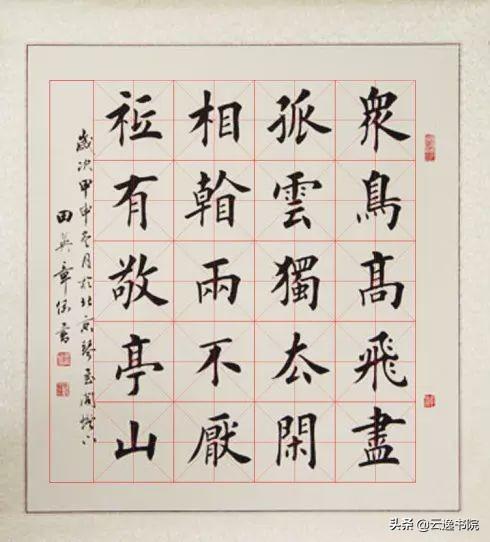 衆鳥髙飛盡
孤雲獨厺閑
相看兩不厭
祗有敬亭山
歲次甲申冬月於北京
田英章 書
头条 @云逸书院